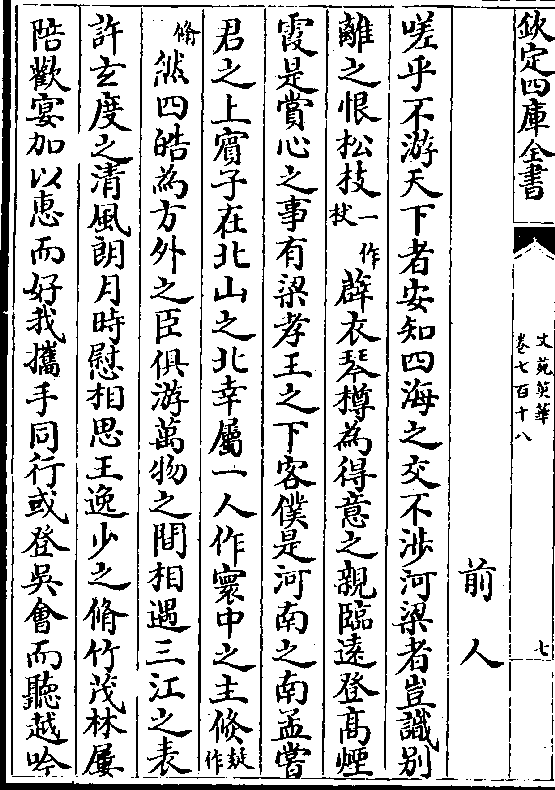 欽定四庫全書
文苑英華
卷七百十八
七
前人
嗟乎不游天下者安知四海之交不涉河梁者豈識别
離之恨松技一作杖薜衣琴樽為得意之親臨遠登高煙
霞是賞心之事有梁孝王之下客僕是河南之南孟嘗
君之上賓子在北山之北幸屬一人作寰中之主倐疑作
翛然四皓為方外之臣俱游萬物之間相遇三江之表
許玄度之清風朗月時慰相思王逸少之脩竹茂林屢
陪歡宴加以惠而好我攜手同行或登吳會而聽越吟